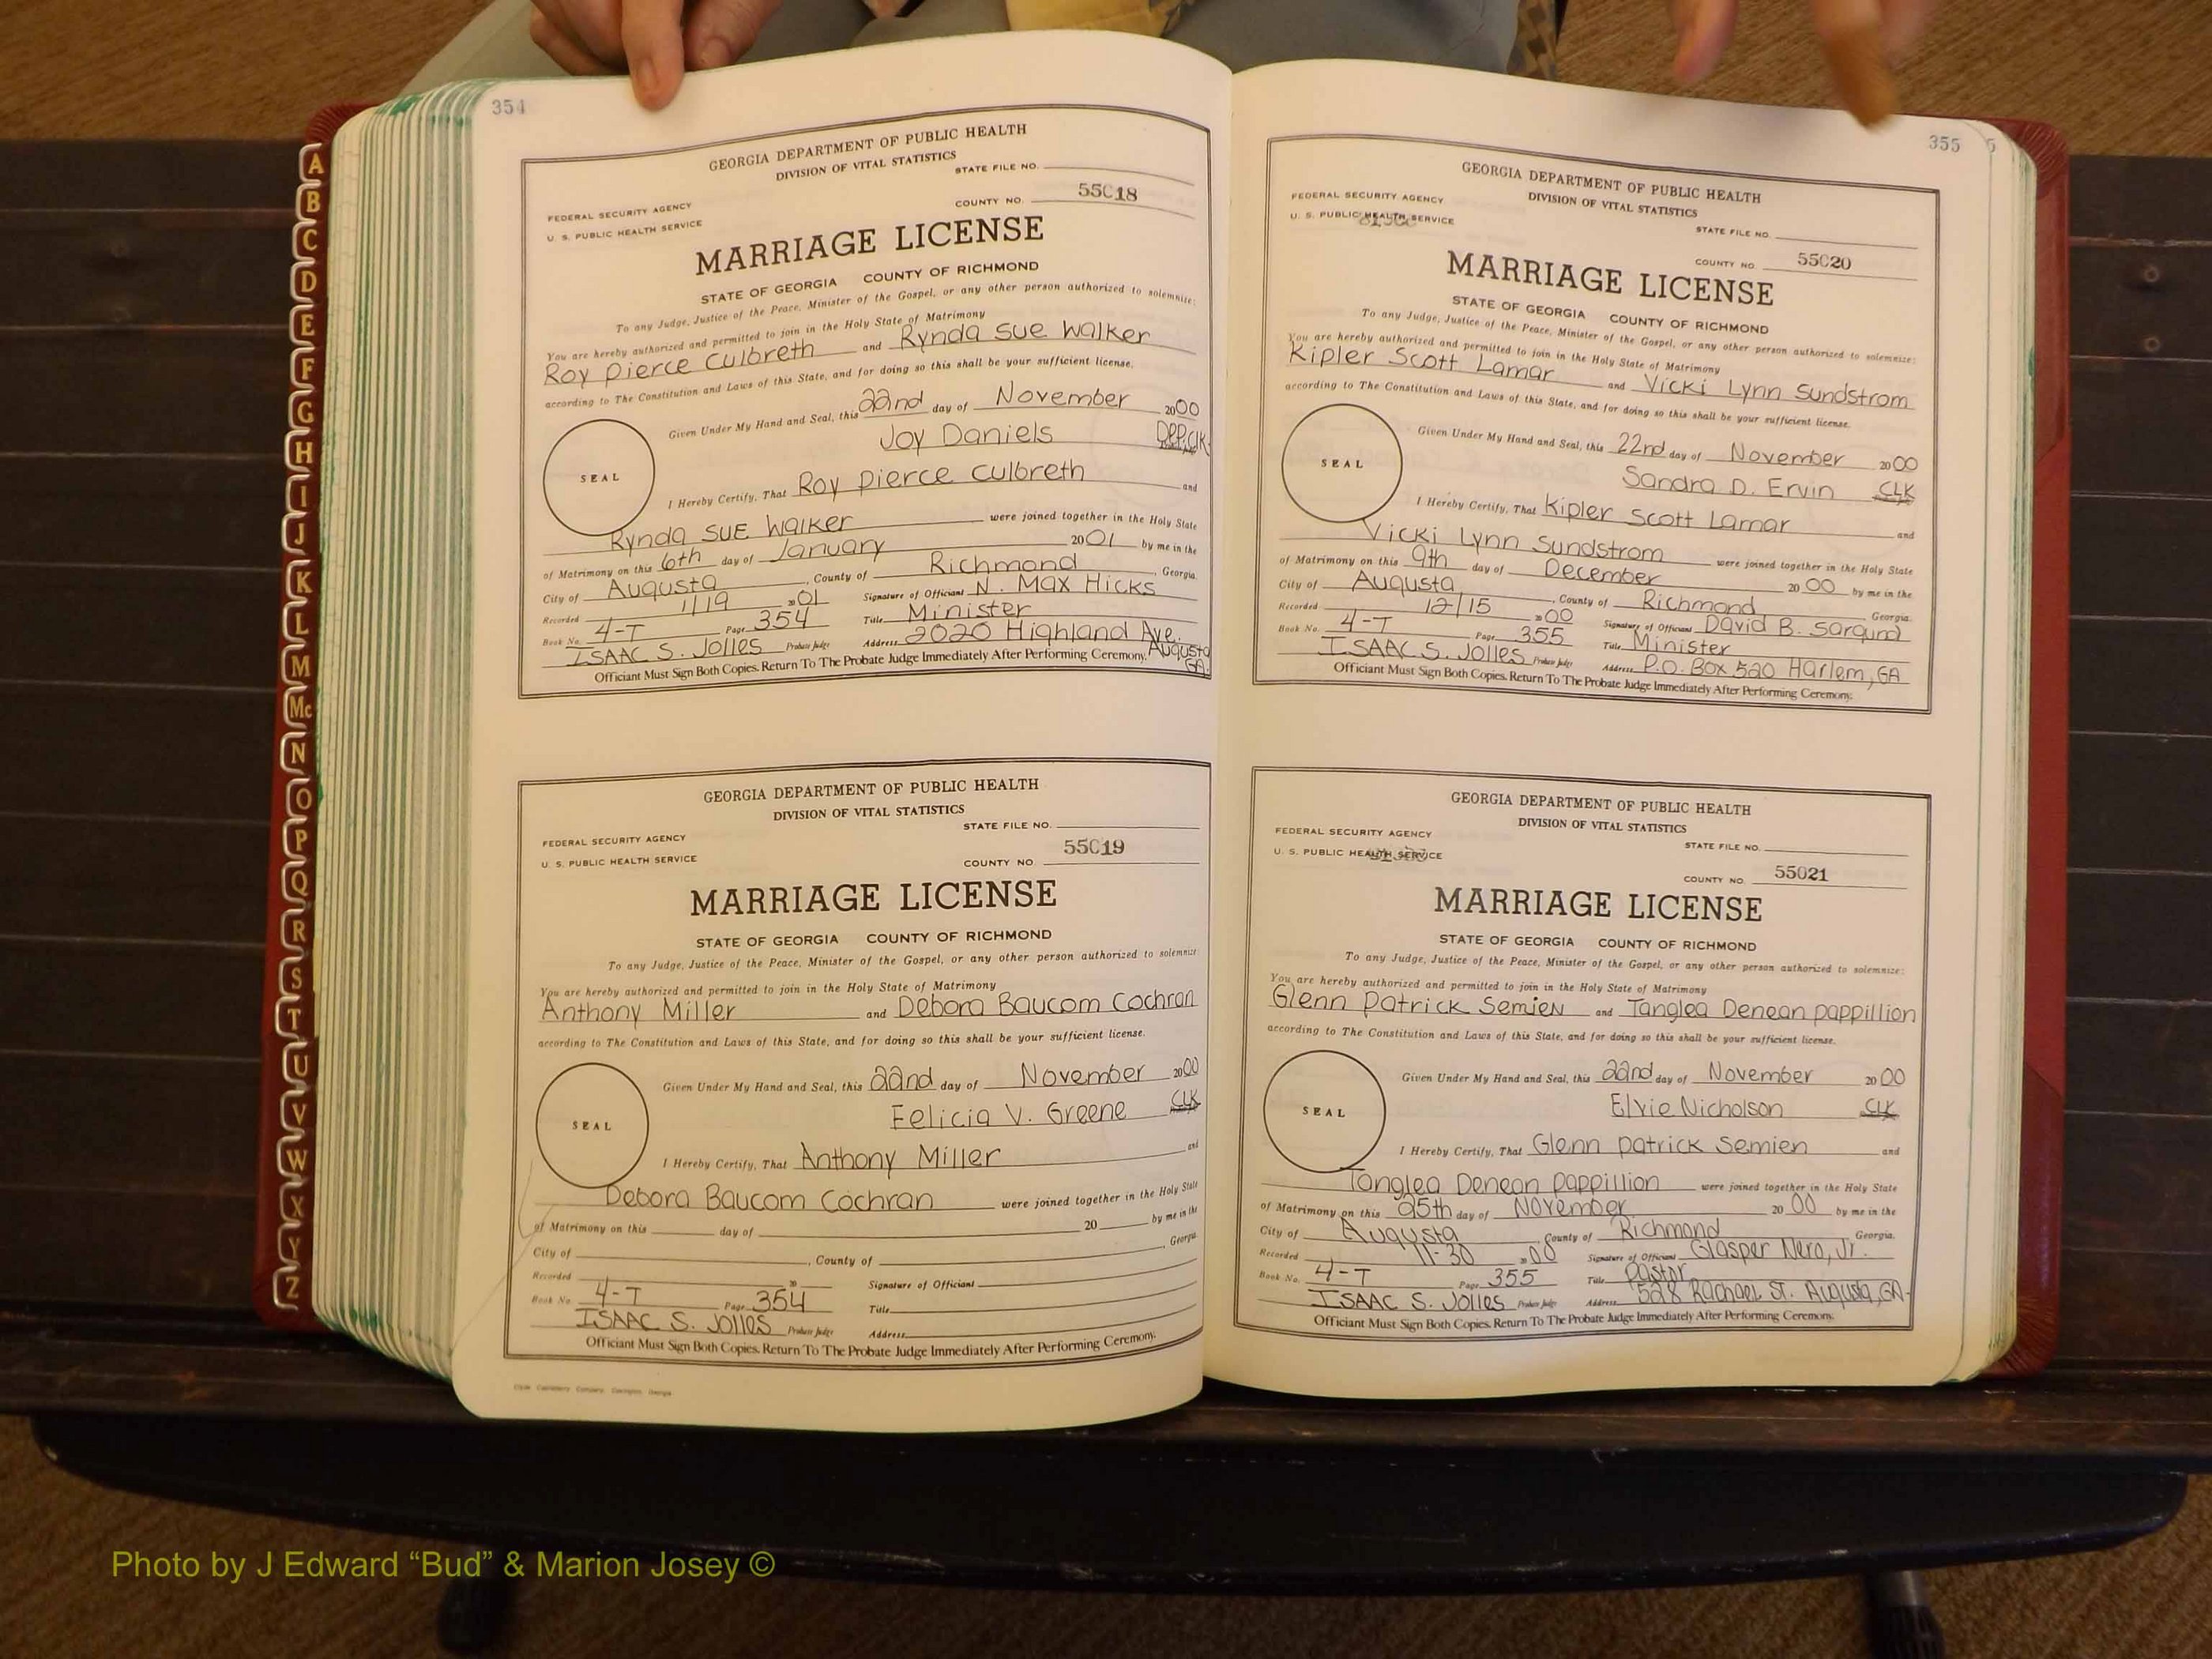 A
B
C
D
E
F
G
H
I
J
K
L
M
Mc
N
O
P
Q
R
S
T
U
V
W
X
Y
Z
354
GEORGIA DEPARTMENT OF PUBLIC HEALTH
DIVISION OF VITAL STATISTICS
STATE FILE NO.
FEDERAL SECURITY AGENCY
U. S. PUBLIC HEALTH SERVICE
COUNTY NO. 55018
MARRIAGE LICENSE
STATE OF GEORGIA COUNTY OF RICHMOND
To any Judge, Justice of the Peace, Minister of the Gospel, or any other person authorized to solemnize:
You are hereby authorized and permitted to join in the Holy State of Matrimony
Roy Pierce Culbreth and Rynda Sue Walker
according to The Constitution and Laws of this State, and for doing so this shall be your sufficient license.
Given Under My Hand and Seal, this 22nd day of November 2000
Joy Daniels Dep. Clk.
SEAL
I Hereby Certify, That Roy Pierce Culbreth and
Rynda Sue Walker were joined together in the Holy State
of Matrimony on this 6th day of January 2001 by me in the
City of Augusta, County of Richmond, Georgia.
Recorded 1/19 2001 Signature of Official N. Max Hicks
Book No. 4-T Page 354 Title Minister
ISAAC S. Jolles Probate Judge Address 2020 Highland Ave. Augusta GA.
Officiant Must Sign Both Copies. Return To The Probate Judge Immediately After Performing Ceremony.
GEORGIA DEPARTMENT OF PUBLIC HEALTH
DIVISION OF VITAL STATISTICS
STATE FILE NO.
FEDERAL SECURITY AGENCY
U. S. PUBLIC HEALTH SERVICE
COUNTY NO. 55019
MARRIAGE LICENSE
STATE OF GEORGIA COUNTY OF RICHMOND
To any Judge, Justice of the Peace, Minister of the Gospel, or any other person authorized to solemnize:
You are hereby authorized and permitted to join in the Holy State of Matrimony
Anthony Miller and Debora Baucom Cochran
according to The Constitution and Laws of this State, and for doing so this shall be your sufficient license.
Given Under My Hand and Seal, this 22nd day of November 2000
Felicia V. Greene CLK
SEAL
I Hereby Certify, That Anthony Miller and
Debora Baucom Cochran were joined together in the Holy State
of Matrimony on this day of 20 by me in the
City of , County of , Georgia.
Recorded 20 Signature of Official
Book No. 4-T Page 354 Title
ISAAC S. Jolles Probate Judge Address
Officiant Must Sign Both Copies. Return To The Probate Judge Immediately After Performing Ceremony.
355
GEORGIA DEPARTMENT OF PUBLIC HEALTH
DIVISION OF VITAL STATISTICS
FEDERAL SECURITY AGENCY
U. S. PUBLIC HEALTH SERVICE
STATE FILE NO.
COUNTY NO. 55020
MARRIAGE LICENSE
STATE OF GEORGIA COUNTY OF RICHMOND
To any Judge, Justice of the Peace, Minister of the Gospel, or any other person authorized to solemnize:
You are hereby authorized and permitted to join in the Holy State of Matrimony
Kipler Scott Lamar and Vicki Lynn Sundstrom
according to The Constitution and Laws of this State, and for doing so this shall be your sufficient license.
Given Under My Hand and Seal, this 22nd day of November 2000
Sandra D. Ervin CLK
SEAL
I Hereby Certify, That Kipler Scott Lamar and
Vicki Lynn Sundstrom were joined together in the Holy State
of Matrimony on this 9th day of December 2000 by me in the
City of Augusta, County of Richmond, Georgia.
Recorded 12/15 2000 Signature of Official David B. Sargund
Book No. 4-T Page 355 Title Minister
ISAAC S. Jolles Probate Judge Address P.O. Box 520 Harlem, GA
Officiant Must Sign Both Copies. Return To The Probate Judge Immediately After Performing Ceremony.
GEORGIA DEPARTMENT OF PUBLIC HEALTH
DIVISION OF VITAL STATISTICS
FEDERAL SECURITY AGENCY
U. S. PUBLIC HEALTH SERVICE
STATE FILE NO.
COUNTY NO. 55021
MARRIAGE LICENSE
STATE OF GEORGIA COUNTY OF RICHMOND
To any Judge, Justice of the Peace, Minister of the Gospel, or any other person authorized to solemnize:
You are hereby authorized and permitted to join in the Holy State of Matrimony
Glenn Patrick Semien and Tanglea Denean Pappillion
according to The Constitution and Laws of this State, and for doing so this shall be your sufficient license.
Given Under My Hand and Seal, this 22nd day of November 2000
Elvie Nicholson CLK
SEAL
I Hereby Certify, That Glenn Patrick Semien and
Tanglea Denean Pappillion were joined together in the Holy State
of Matrimony on this 25th day of November 2000 by me in the
City of Augusta, County of Richmond Georgia.
Recorded 11-30 2000 Signature of Official Glasper Nero, Jr.
Book No. 4-T Page 355 Title Pastor
ISAAC S. Jolles Probate Judge Address 528 Rachael St. Augusta, GA.
Officiant Must Sign Both Copies. Return To The Probate Judge Immediately After Performing Ceremony.
Photo by J Edward “Bud” & Marion Josey ©